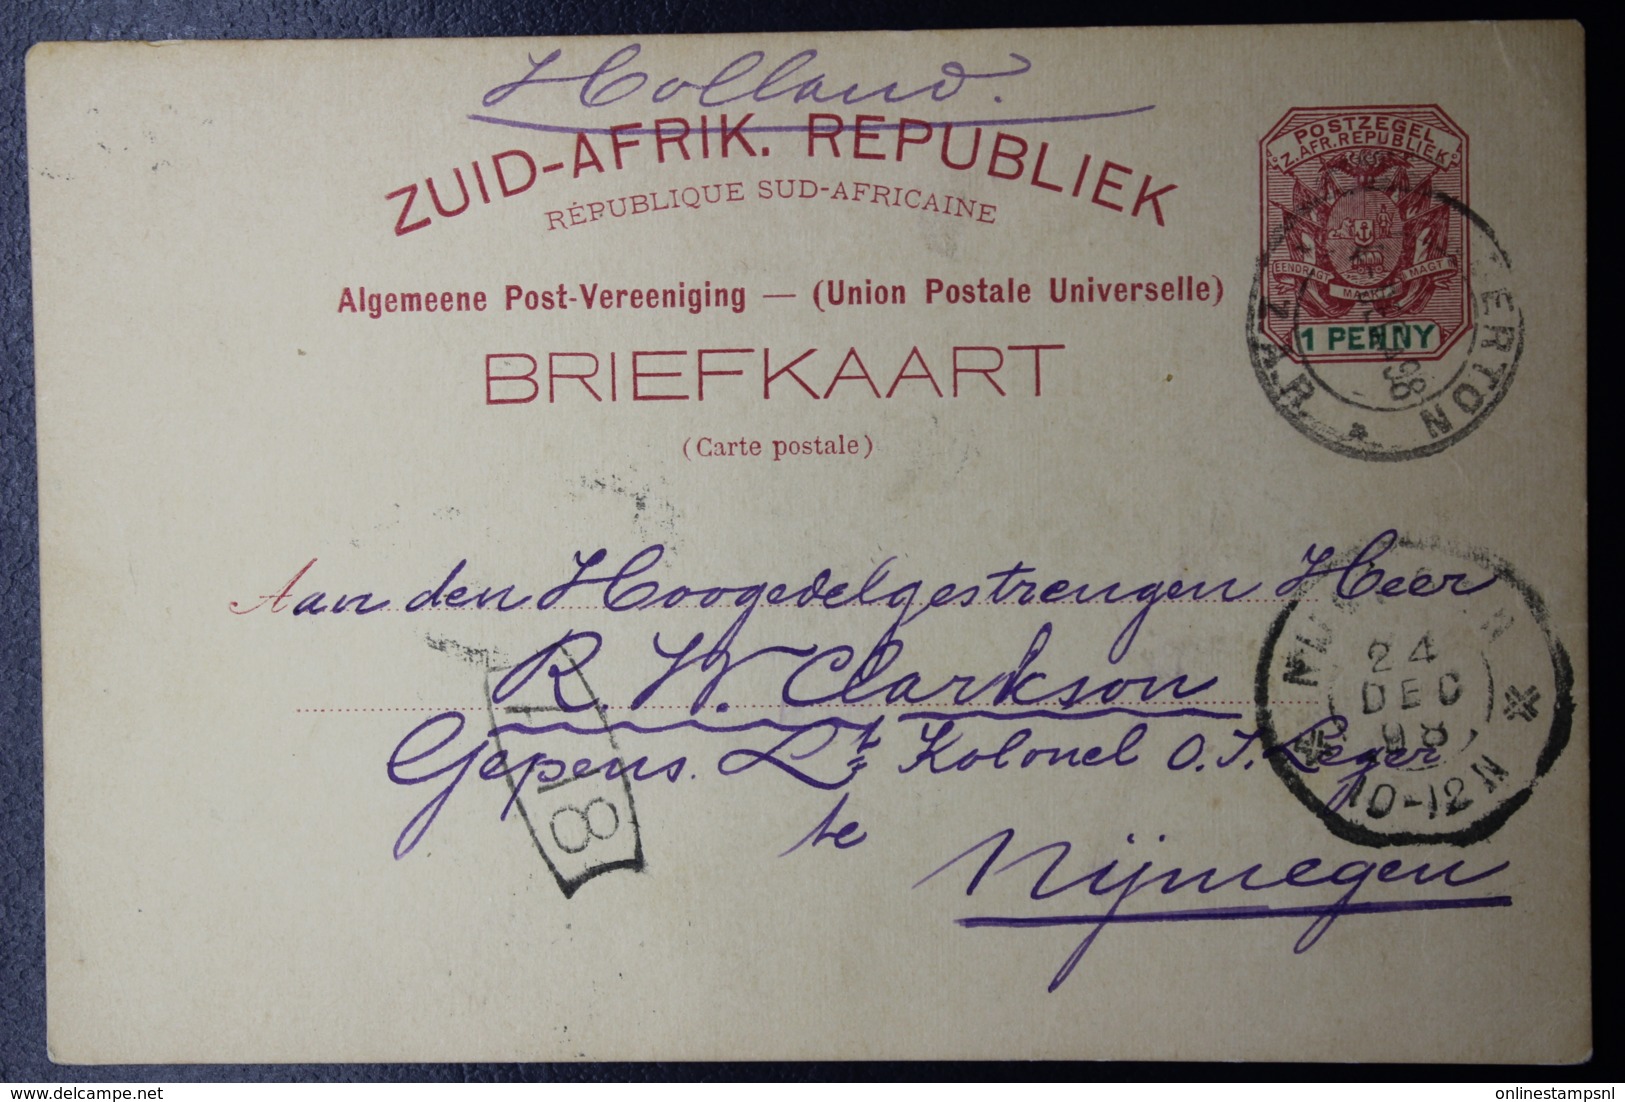 Holland.
ZUID-AFRIK. REPUBLIEK
RÉPUBLIQUE SUD-AFRICAINE
POSTZEGEL
Z. AFR. REPUBLIEK
EENDRAGT MAAKT MAGT
1 PENNY
ERTON
Z.A.R.
98
Algemeene Post-Vereeniging — (Union Postale Universelle)
BRIEFKAART
(Carte postale)
Aan den Hoogedelgestrengen Heer
R. W. Clarkson
Gepens. Lt Kolonel O. I. Leger
te
Nijmegen
24
DEC
98
10-12N
18
delcampe.net
onlinestampsnl